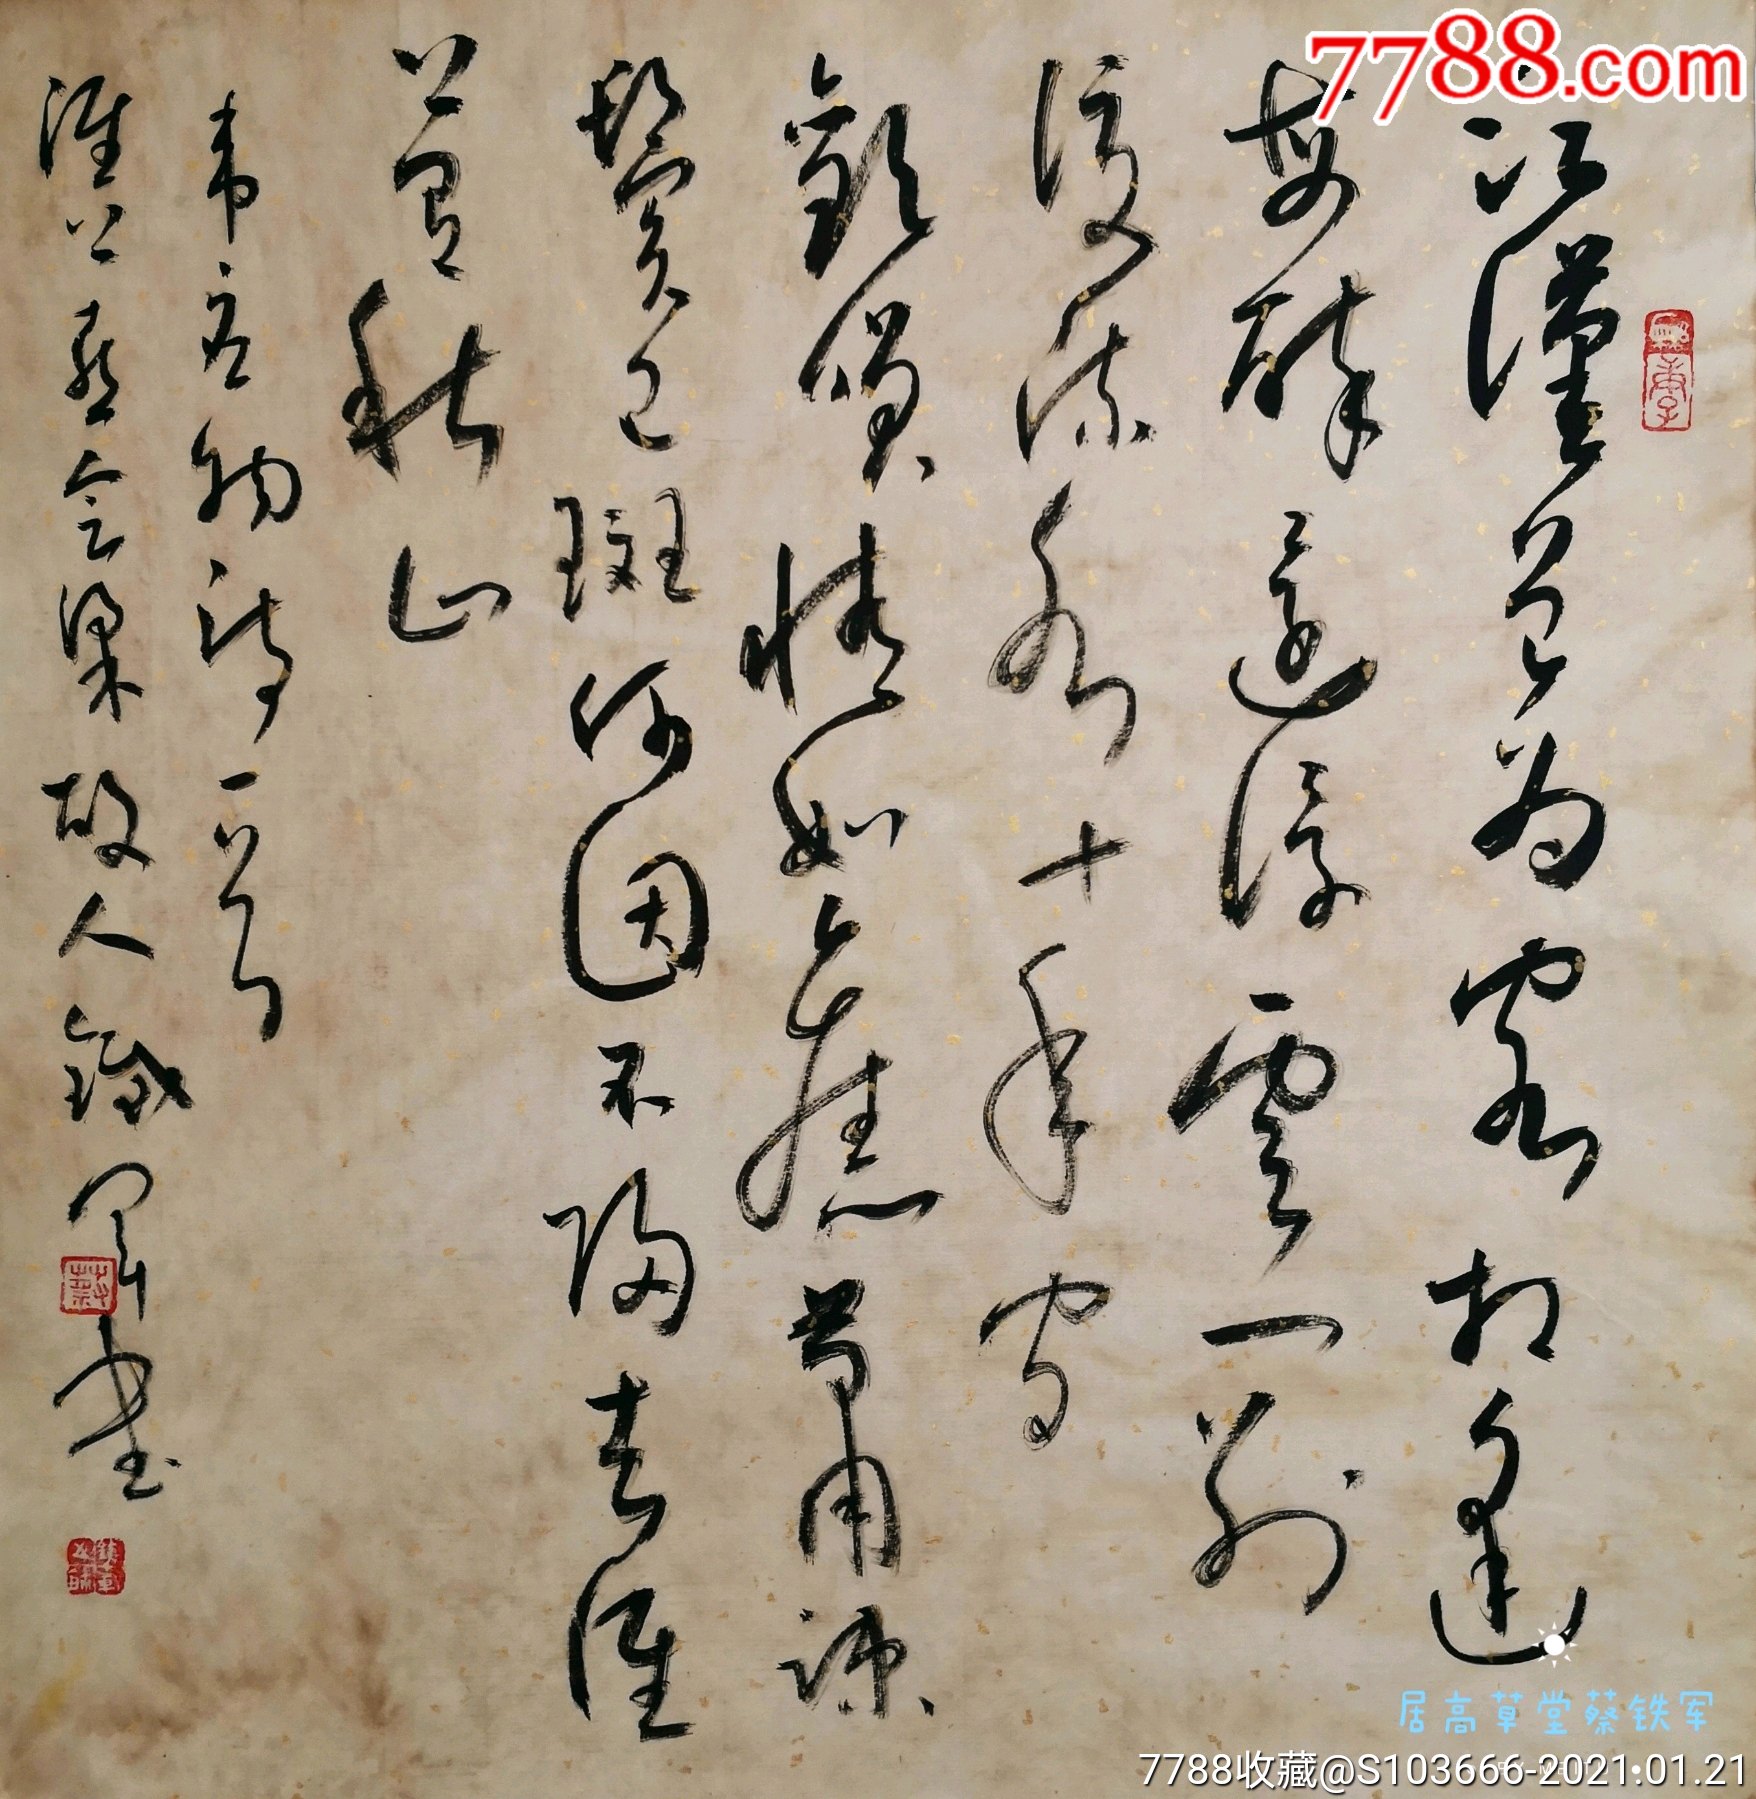 7788.com
江漢曾为客相逢
每醉還浮雲一别
後流水十年间
歡笑情如舊萧疎
鬢已斑何因不歸去淮
上有秋山
韦应物詩一首
淮上喜会梁故人鐵军书
居高草堂蔡铁军
7788收藏@S103666-2021.01.21